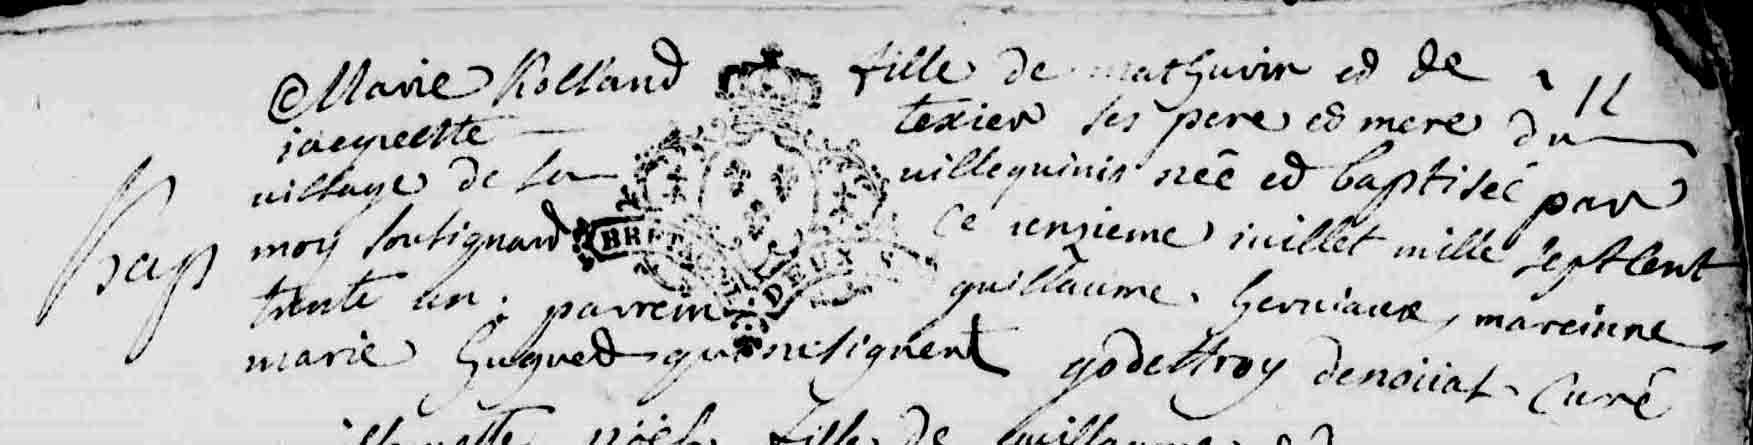 Marie Rolland fille de mathurin et de
jacquette texier ses pere et mere du
village de la villequinis née et baptisée par
moy soubsignant ce unzieme juillet mille sept cent
trente un. parrein guillaume herviaux, mareinne
marie huguet qui ne signent godeffroy denoual curé
bap
11
BRETAGNE DEUX S
fille de guillaume et